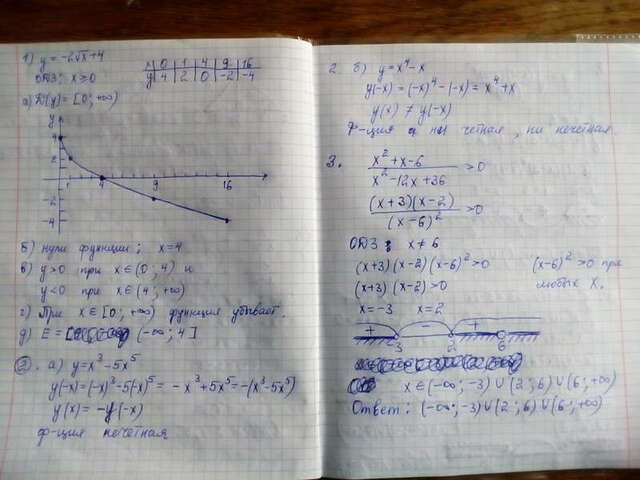 1) y = -2√x + 4
x 0 1 4 9 16
y 4 2 0 -2 -4
ОДЗ: x ≥ 0
а) D(y) = [0; +∞)
y
4
2
-2
-4
1 4 9 16
б) нули функции: x=4
в) y>0 при x∈(0; 4) и
y<0 при x∈(4; +∞)
г) При x∈[0; +∞) функция убывает.
д) E = (-∞; 4]
2. а) y = x³ - 5x⁵
y(-x) = (-x)³ - 5(-x)⁵ = -x³ + 5x⁵ = -(x³ - 5x⁵)
y(x) = -y(-x)
ф-ция нечетная
2. б) y = x⁴ - x
y(-x) = (-x)⁴ - (-x) = x⁴ + x
y(x) ≠ y(-x)
Ф-ция ни четная, ни нечетная
3.
(x² + x - 6)/(x² - 12x + 36) > 0
((x+3)(x-2))/((x-6)²) > 0
ОДЗ: x ≠ 6
(x+3)(x-2)(x-6)² > 0 (x-6)² > 0 при
(x+3)(x-2) > 0 любых x.
x = -3 x = 2
+ - + +
-3 2 6
x∈(-∞; -3)∪(2; 6)∪(6; +∞)
Ответ: (-∞; -3)∪(2; 6)∪(6; +∞)